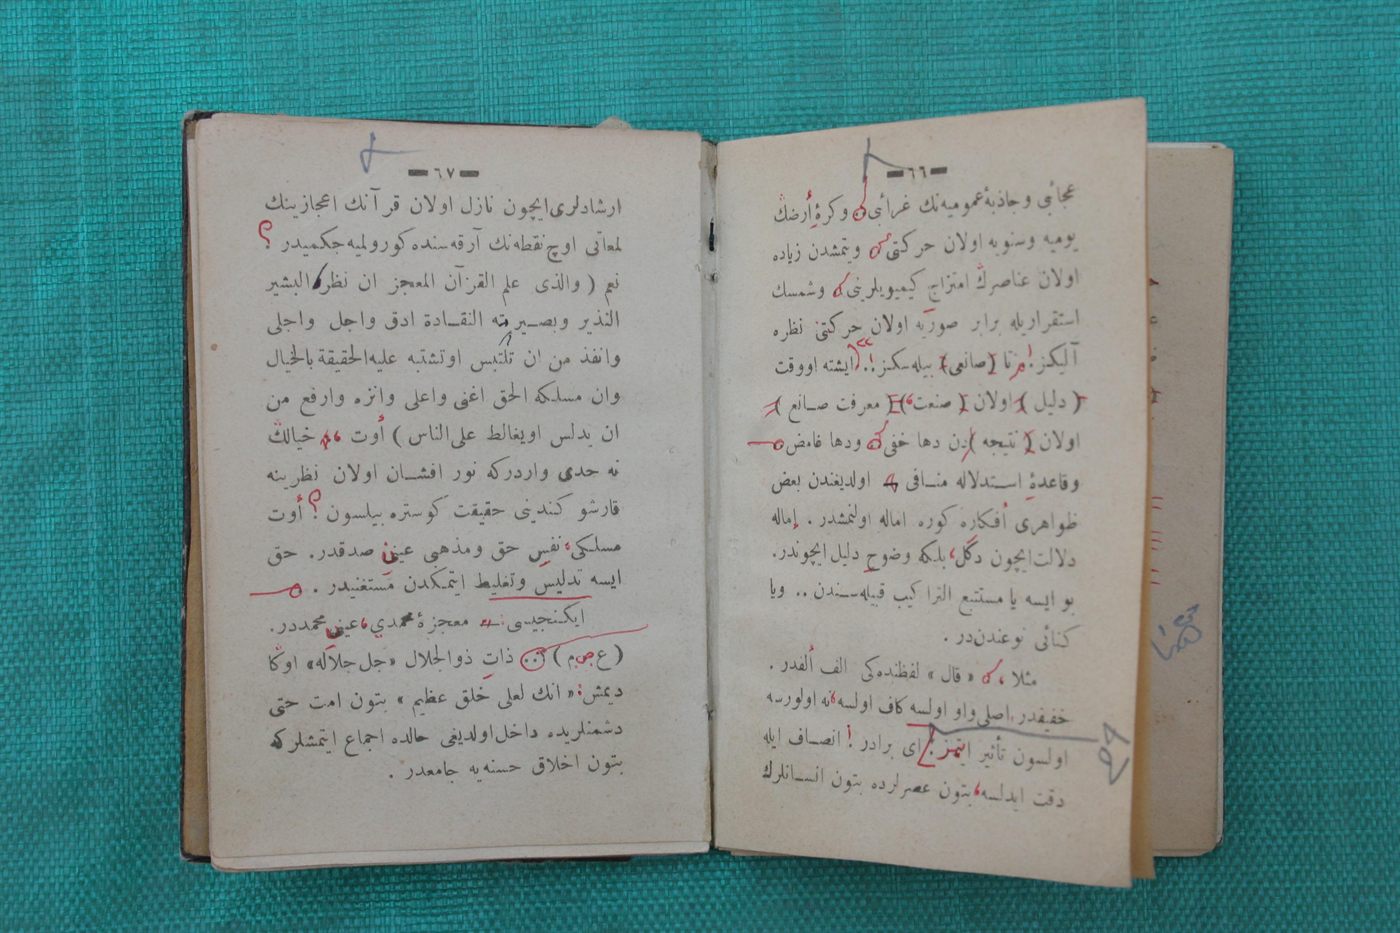 — ٦٦ —
عجائبی و جاذبۀ عمومیه‌نك غرائبی و كرۀ أرضك
یومیه وسنویه اولان حركتی و یتمشدن زیاده
اولان عناصرك امتزاج كیمیویلرینی و شمسك
استقراریله برابر صوریه اولان حركتنی نظره
آلیكز ! تا ( صانعی ) بیله‌سكز ! . ( ایشته اووقت
( دلیل ) اولان ( صنعت ) ( معرفت صانع )
اولان ( نتیجه ) دن دها خفی و دها غامض
وقاعدۀ استدلاله منافی اولدیغندن بعض
ظواهری أفكاره كوره اماله اولنمشدر . إماله
دلالت ایچون دگل ، بلكه وضوح دلیل ایچوندر .
بو ایسه یا مستتبع التراكیب قبیله‌سندن .. ویا
كنائی نوعندن‌در .
مثلا ، « قال » لفظنده‌كی الف ألفدر .
خفیفدر . اصلی واو اولسه كاف اولسه نه اولورسه
اولسون تأثیر ایتمز ! ای برادر ! انصاف ایله
دقت ایدلسه ، بتون عصرلرده بتون انسانلرك
— ٦٧ —
ارشادلری ایچون نازل اولان قرآنك اعجازینك
لمعاتی اوچ نقطه‌نك آرقه‌سنده كورولمیه‌جكمیدر ؟
نعم ( والذی علم القرآن المعجز ان نظر البشیر
النذیر وبصیرته النقادة ادق واجل واجلی
وانفذ من ان تلتبس اوتشتبه علیه الحقیقة بالخیال
وان مسلكه الحق اغنی واعلی وانزه وارفع من
ان یدلس اویغالط علی الناس ) أوت خیالك
نه حدی واردركه نور افشان اولان نظرینه
قارشو كندینی حقیقت كوستره بیلسون ؟ أوت
مسلكی نفس حق ومذهبی عین صدقدر . حق
ایسه تدلیس وتغلیط ایتمكدن مستغنیدر .
ایكنجیسی معجزۀ محمدی ، عین محمددر .
( ع ص م ) ذات ذوالجلال « جل جلاله » اوكا
دیمش : « انك لعلی خلق عظیم » بتون امت حتی
دشمنلریده داخل اولدیغی حالده اجماع ایتمشلركه
بتون اخلاق حسنه‌یه جامعدر .